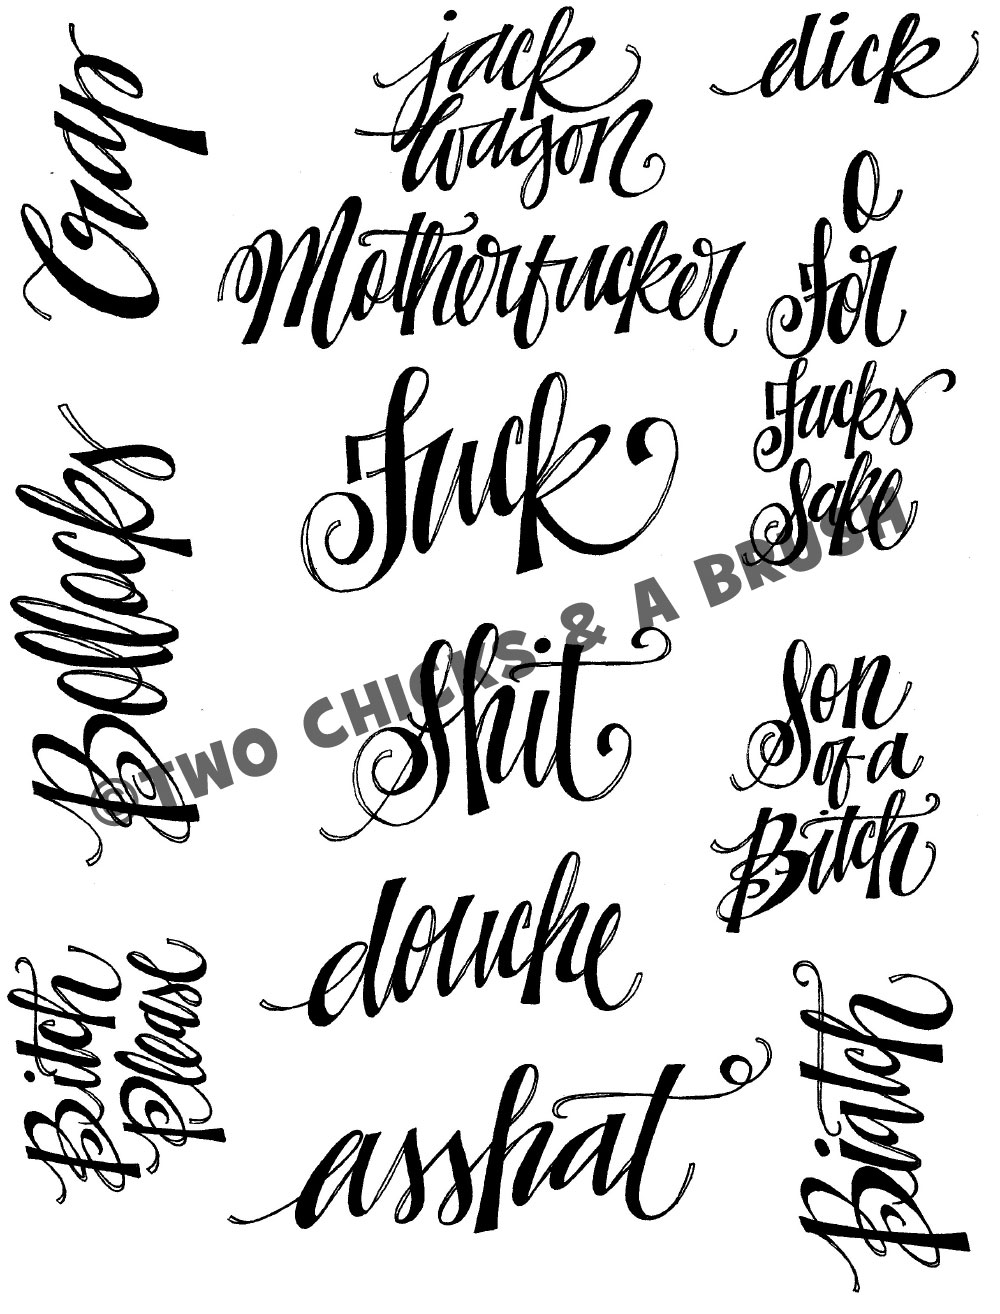 Crap
jack
wagon
dick
Motherfucker
O
For
Fucks
Sake
Fuck
Bollocks
shit
Son
of a
Bitch
douche
Bitch
Please
asshat
Biatch
©TWO CHICKS & A BRUSH